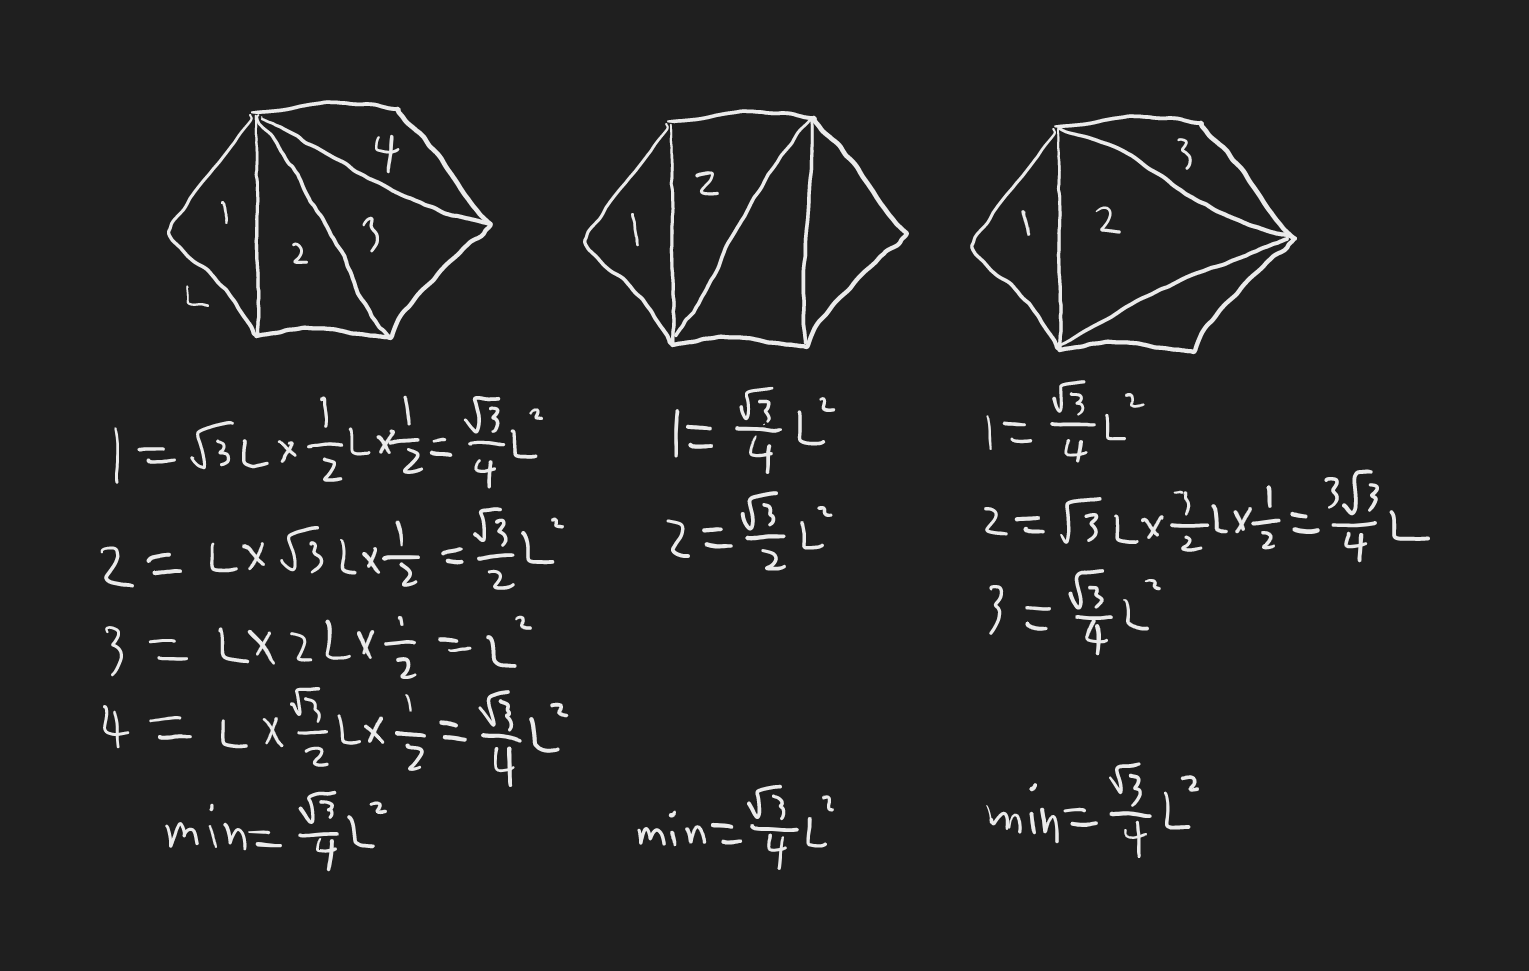 1 2 3 4 L
1 2
1 2 3
1 = √3L × 1/2 L × 1/2 = √3/4 L²
2 = L × √3L × 1/2 = √3/2 L²
3 = L × 2L × 1/2 = L²
4 = L × √3/2 L × 1/2 = √3/4 L²
min = √3/4 L²
1 = √3/4 L²
2 = √3/2 L²
min = √3/4 L²
1 = √3/4 L²
2 = √3L × 3/2 L × 1/2 = 3√3/4 L
3 = √3/4 L²
min = √3/4 L²